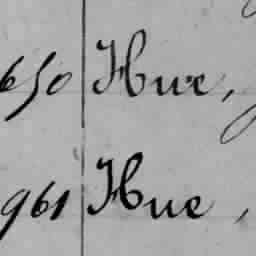 650 Hue,
961 Hue,